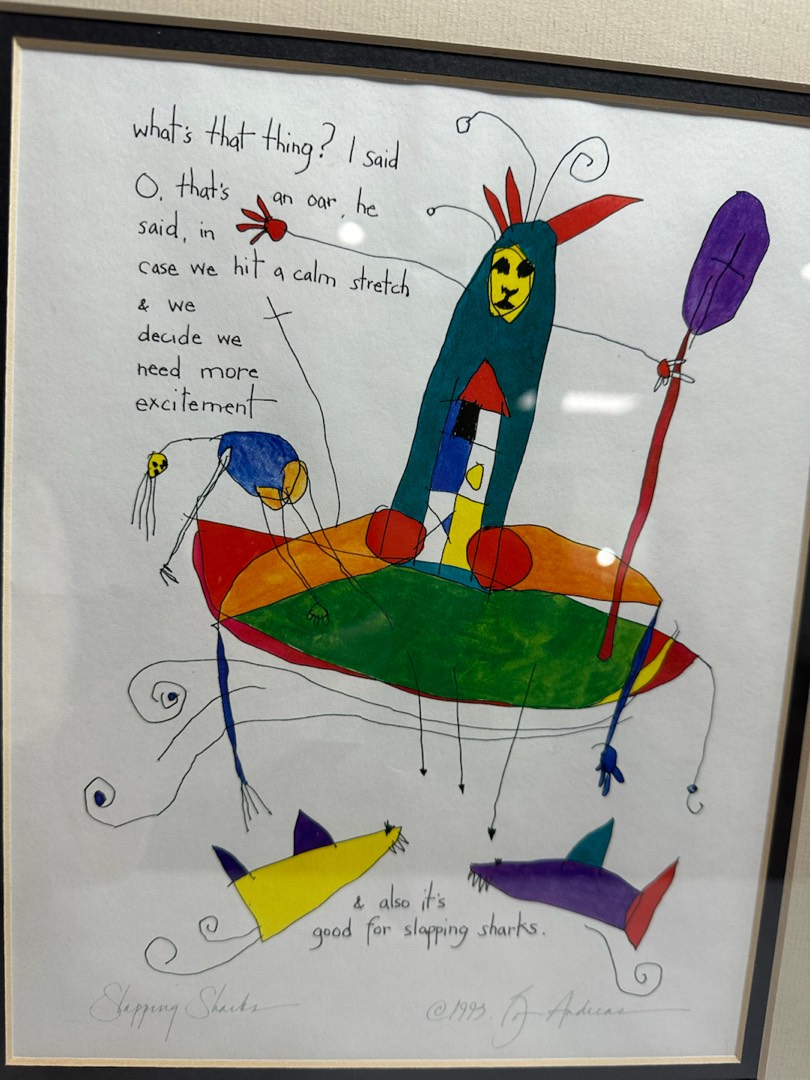 what's that thing? I said
O, that's an oar, he
said, in
case we hit a calm stretch
& we
decide we
need more
excitement
& also it's
good for slapping sharks.
Slapping Sharks
©1993. Andreas